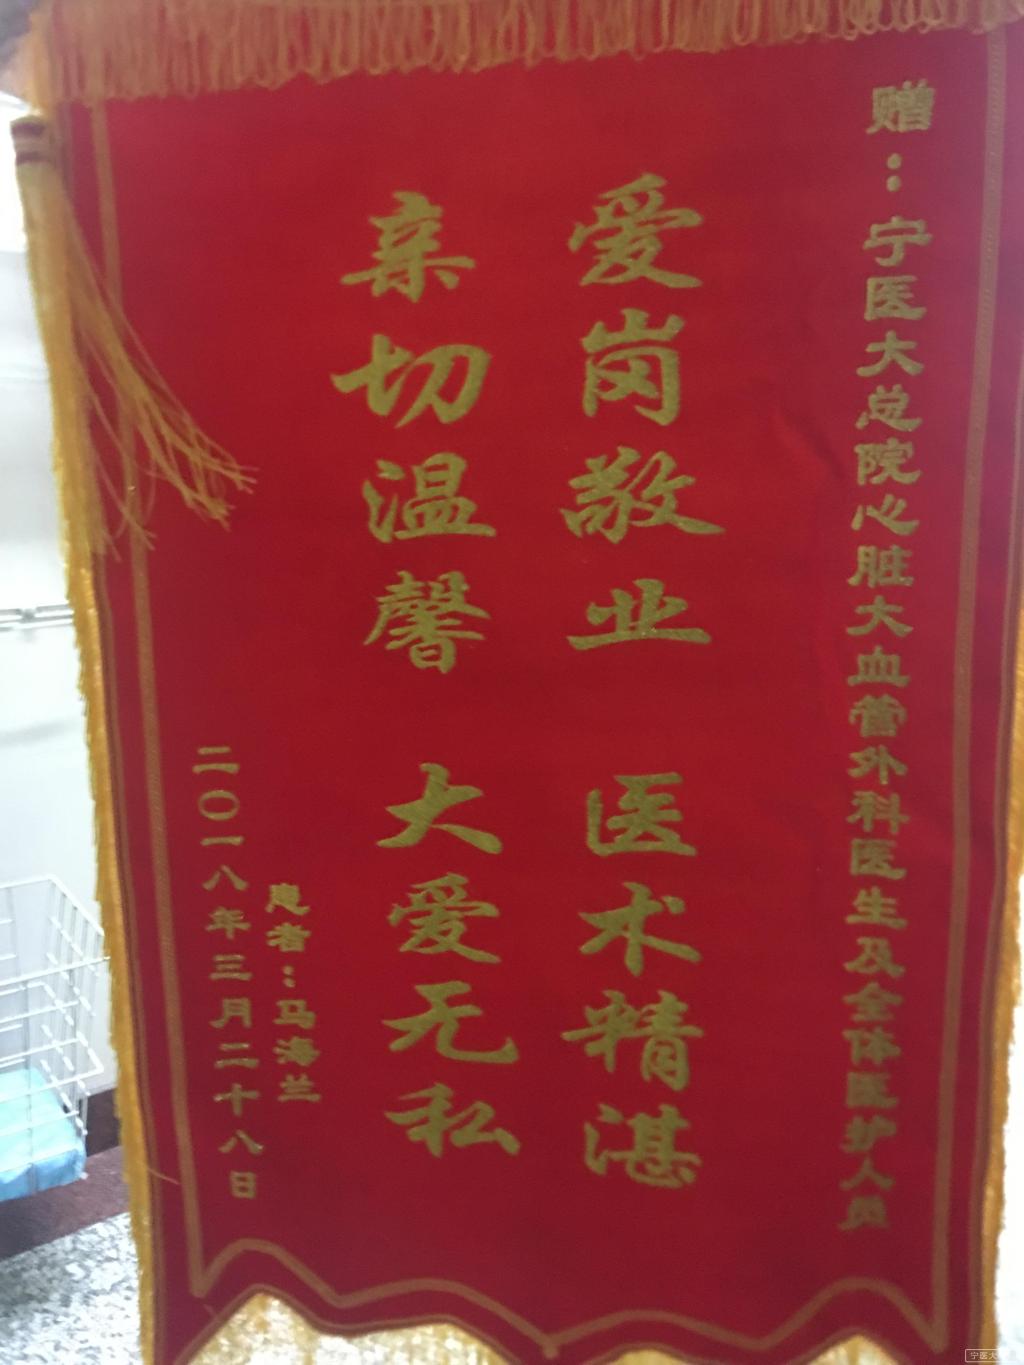 赠：宁医大总院心脏大血管外科医生及全体医护人员
爱岗敬业 医术精湛
亲切温馨 大爱无私
患者：马海兰
二〇一八年三月二十八日
宁医大